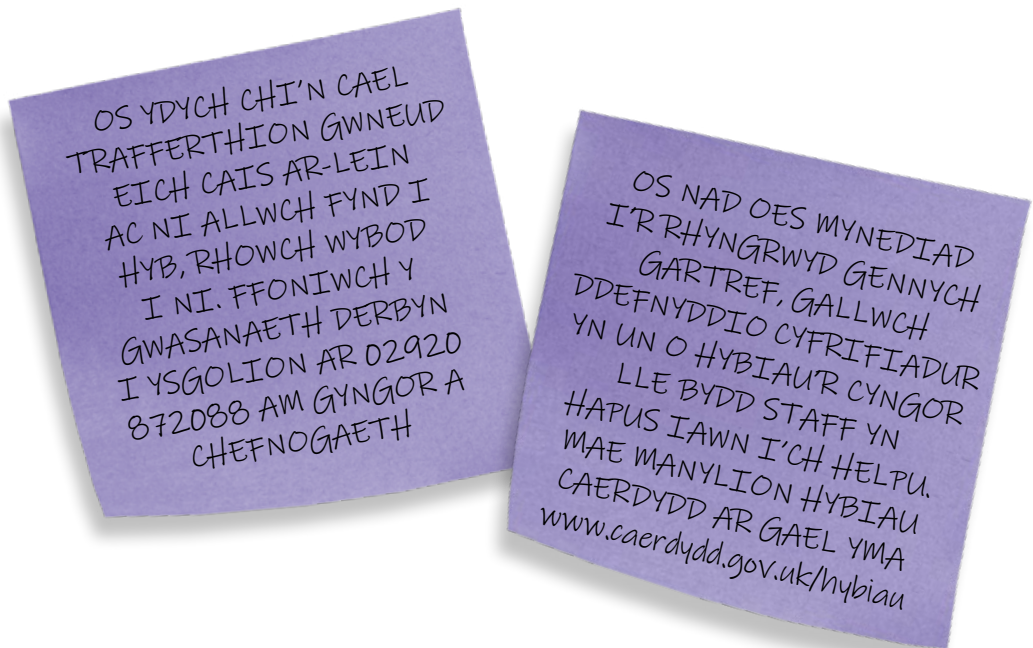 OS YDYCH CHI'N CAEL
TRAFFERTHION GWNEUD
EICH CAIS AR-LEIN
AC NI ALLWCH FYND I
HYB, RHOWCH WYBOD
I NI. FFONIWCH Y
GWASANAETH DERBYN
I YSGOLION AR 02920
872088 AM GYNGOR A
CHEFNOGAETH
OS NAD OES MYNEDIAD
I'R RHYNGRWYD GENNYCH
GARTREF, GALLWCH
DDEFNYDDIO CYFRIFIADUR
YN UN O HYBIAU'R CYNGOR
LLE BYDD STAFF YN
HAPUS IAWN I'CH HELPU.
MAE MANYLION HYBIAU
CAERDYDD AR GAEL YMA
www.caerdydd.gov.uk/hybiau